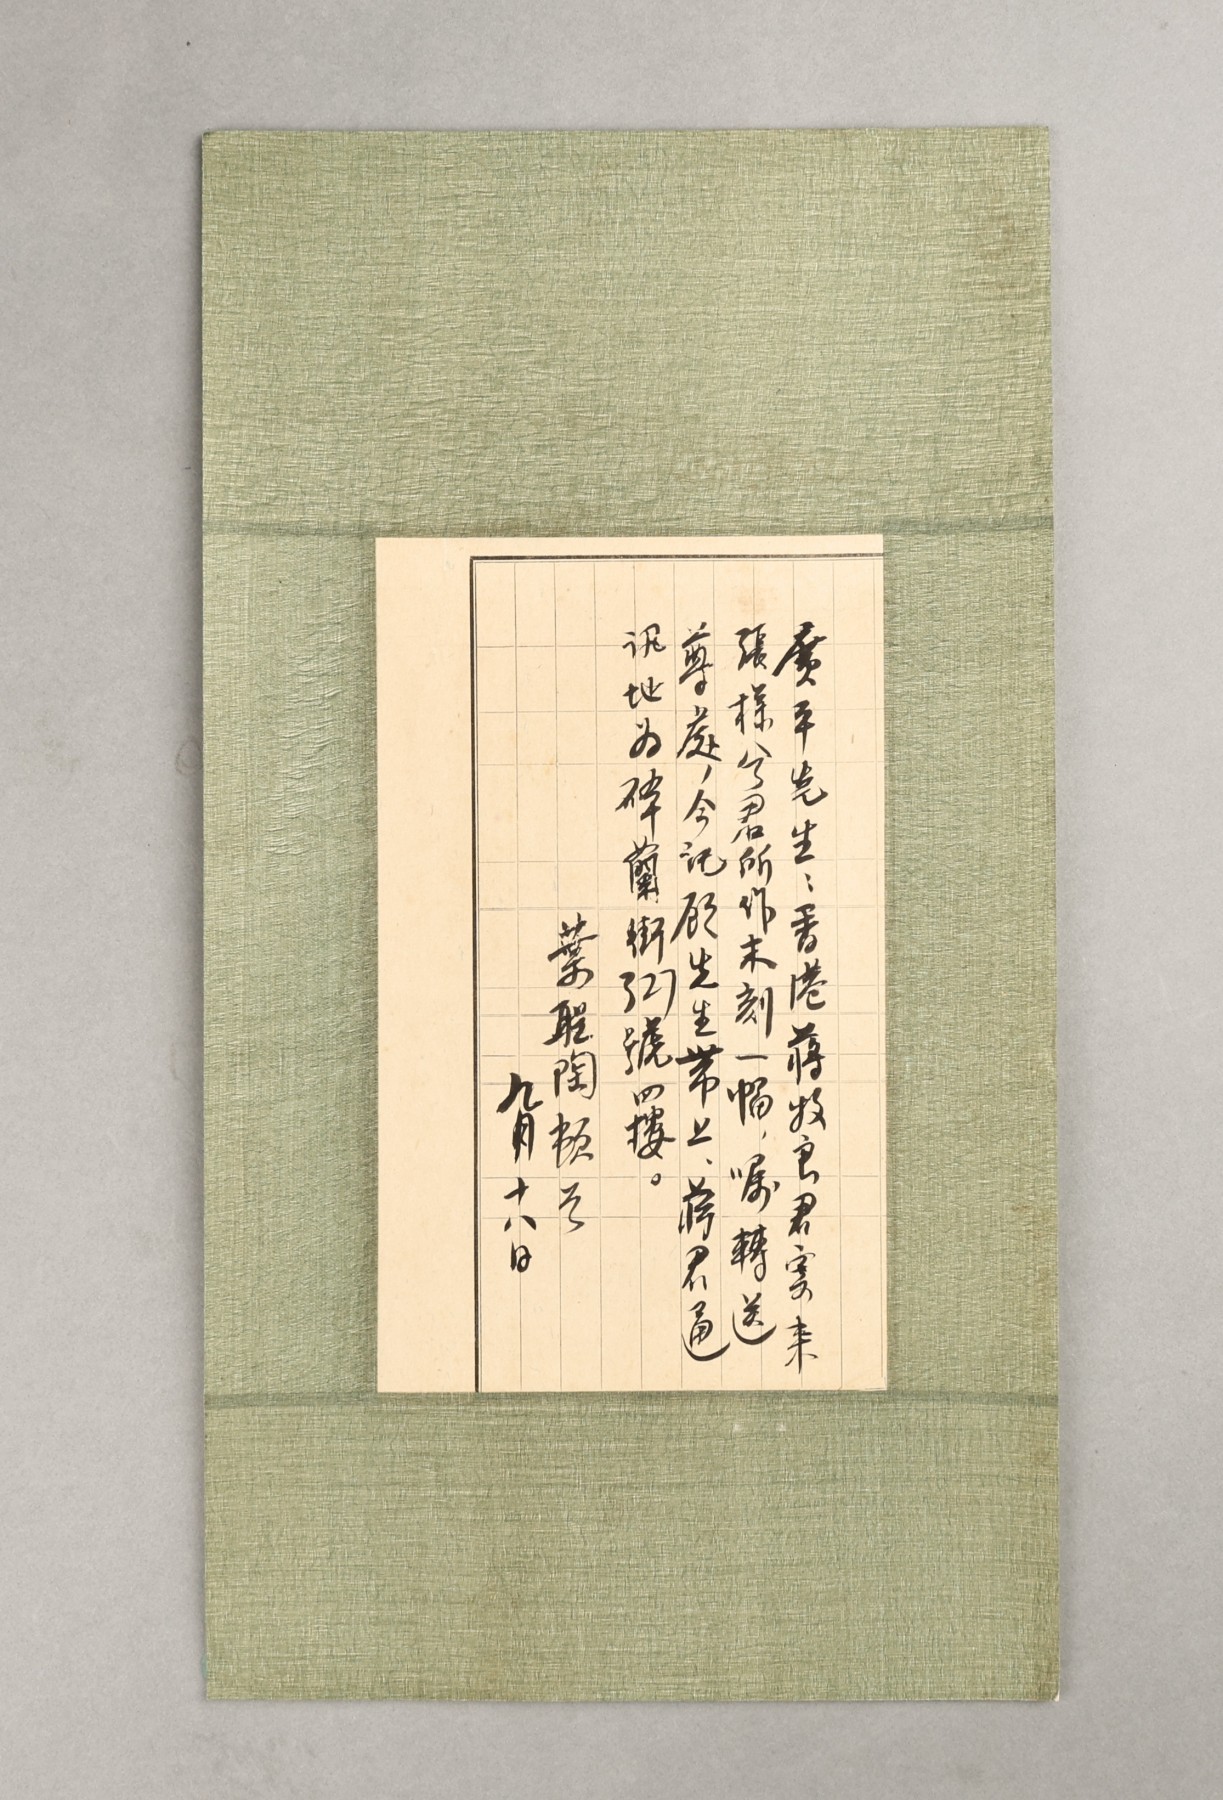 廣平先生：香港蔣牧良君寄来
張樣兮君所作木刻一幅，囑轉送
尊處，今託顧先生帶上，蔣君通
訊地为砵蘭街327號四樓。
葉聖陶頓首
九月十八日